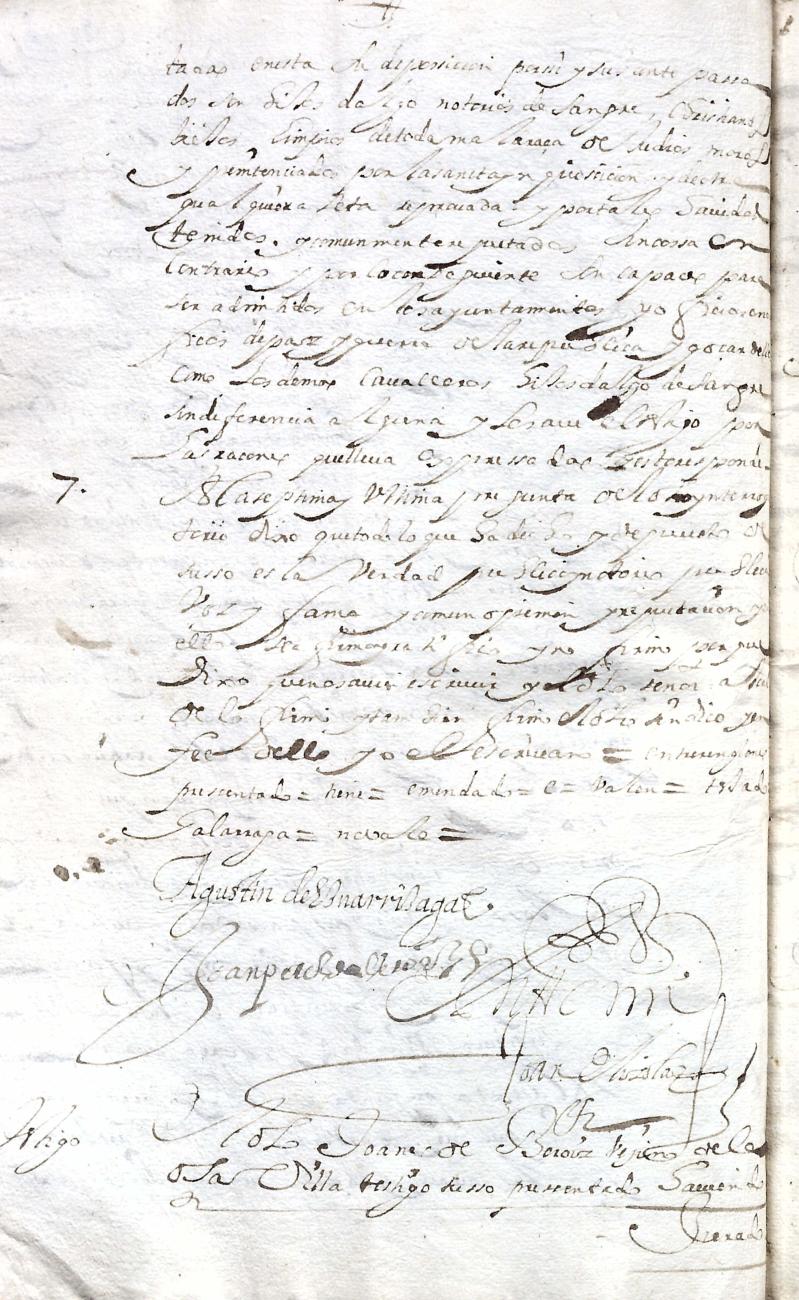 tadas en esta su deposicion por si y sus ante passa
dos son hijos dalgo notorios de sangre, christianos
biejos limpios de toda mala raça de Judios moros
y penitenciados por la santa ynquisicion y de otra
qualquiera seta reprovada y por tales havidos
tenidos y comunmente reputados sin cossa en
contrario y por lo conseguiente son capaces para
ser admitidos en los ayuntamientos y officios onro
ficos de paz y guerra de la republica y goçar dellos
como los demas cavalleros hijosdalgo de sangre
sin diferencia alguna y lo save el testigo por
las raçones que lleva espressadas y esto responde
7. A la septima y ultima pregunta de los ynterroga
torio dixo que todo lo que ha dicho y depuesto de
susso es la verdad publico y notorio publica
voz y fama y comun opinion y reputacion y en
ello se afirmo y ratifico y no firmo por que
dixo que no savia escrivir y el dicho señor alcalde
de lo firmo y tambien firmo el dicho sindico y en
fee dello yo el escrivano = entre renglones
pressentado = tiene = emendado = e = valen = testado
Galarraga = no vale =
Agustin de Yuarrizaga
Joan perez
Ante mi
Joan
Testigo
El dicho Joanes de Beroiz vezino de la
dha Villa testigo susso pressentado haviendo
Jurado